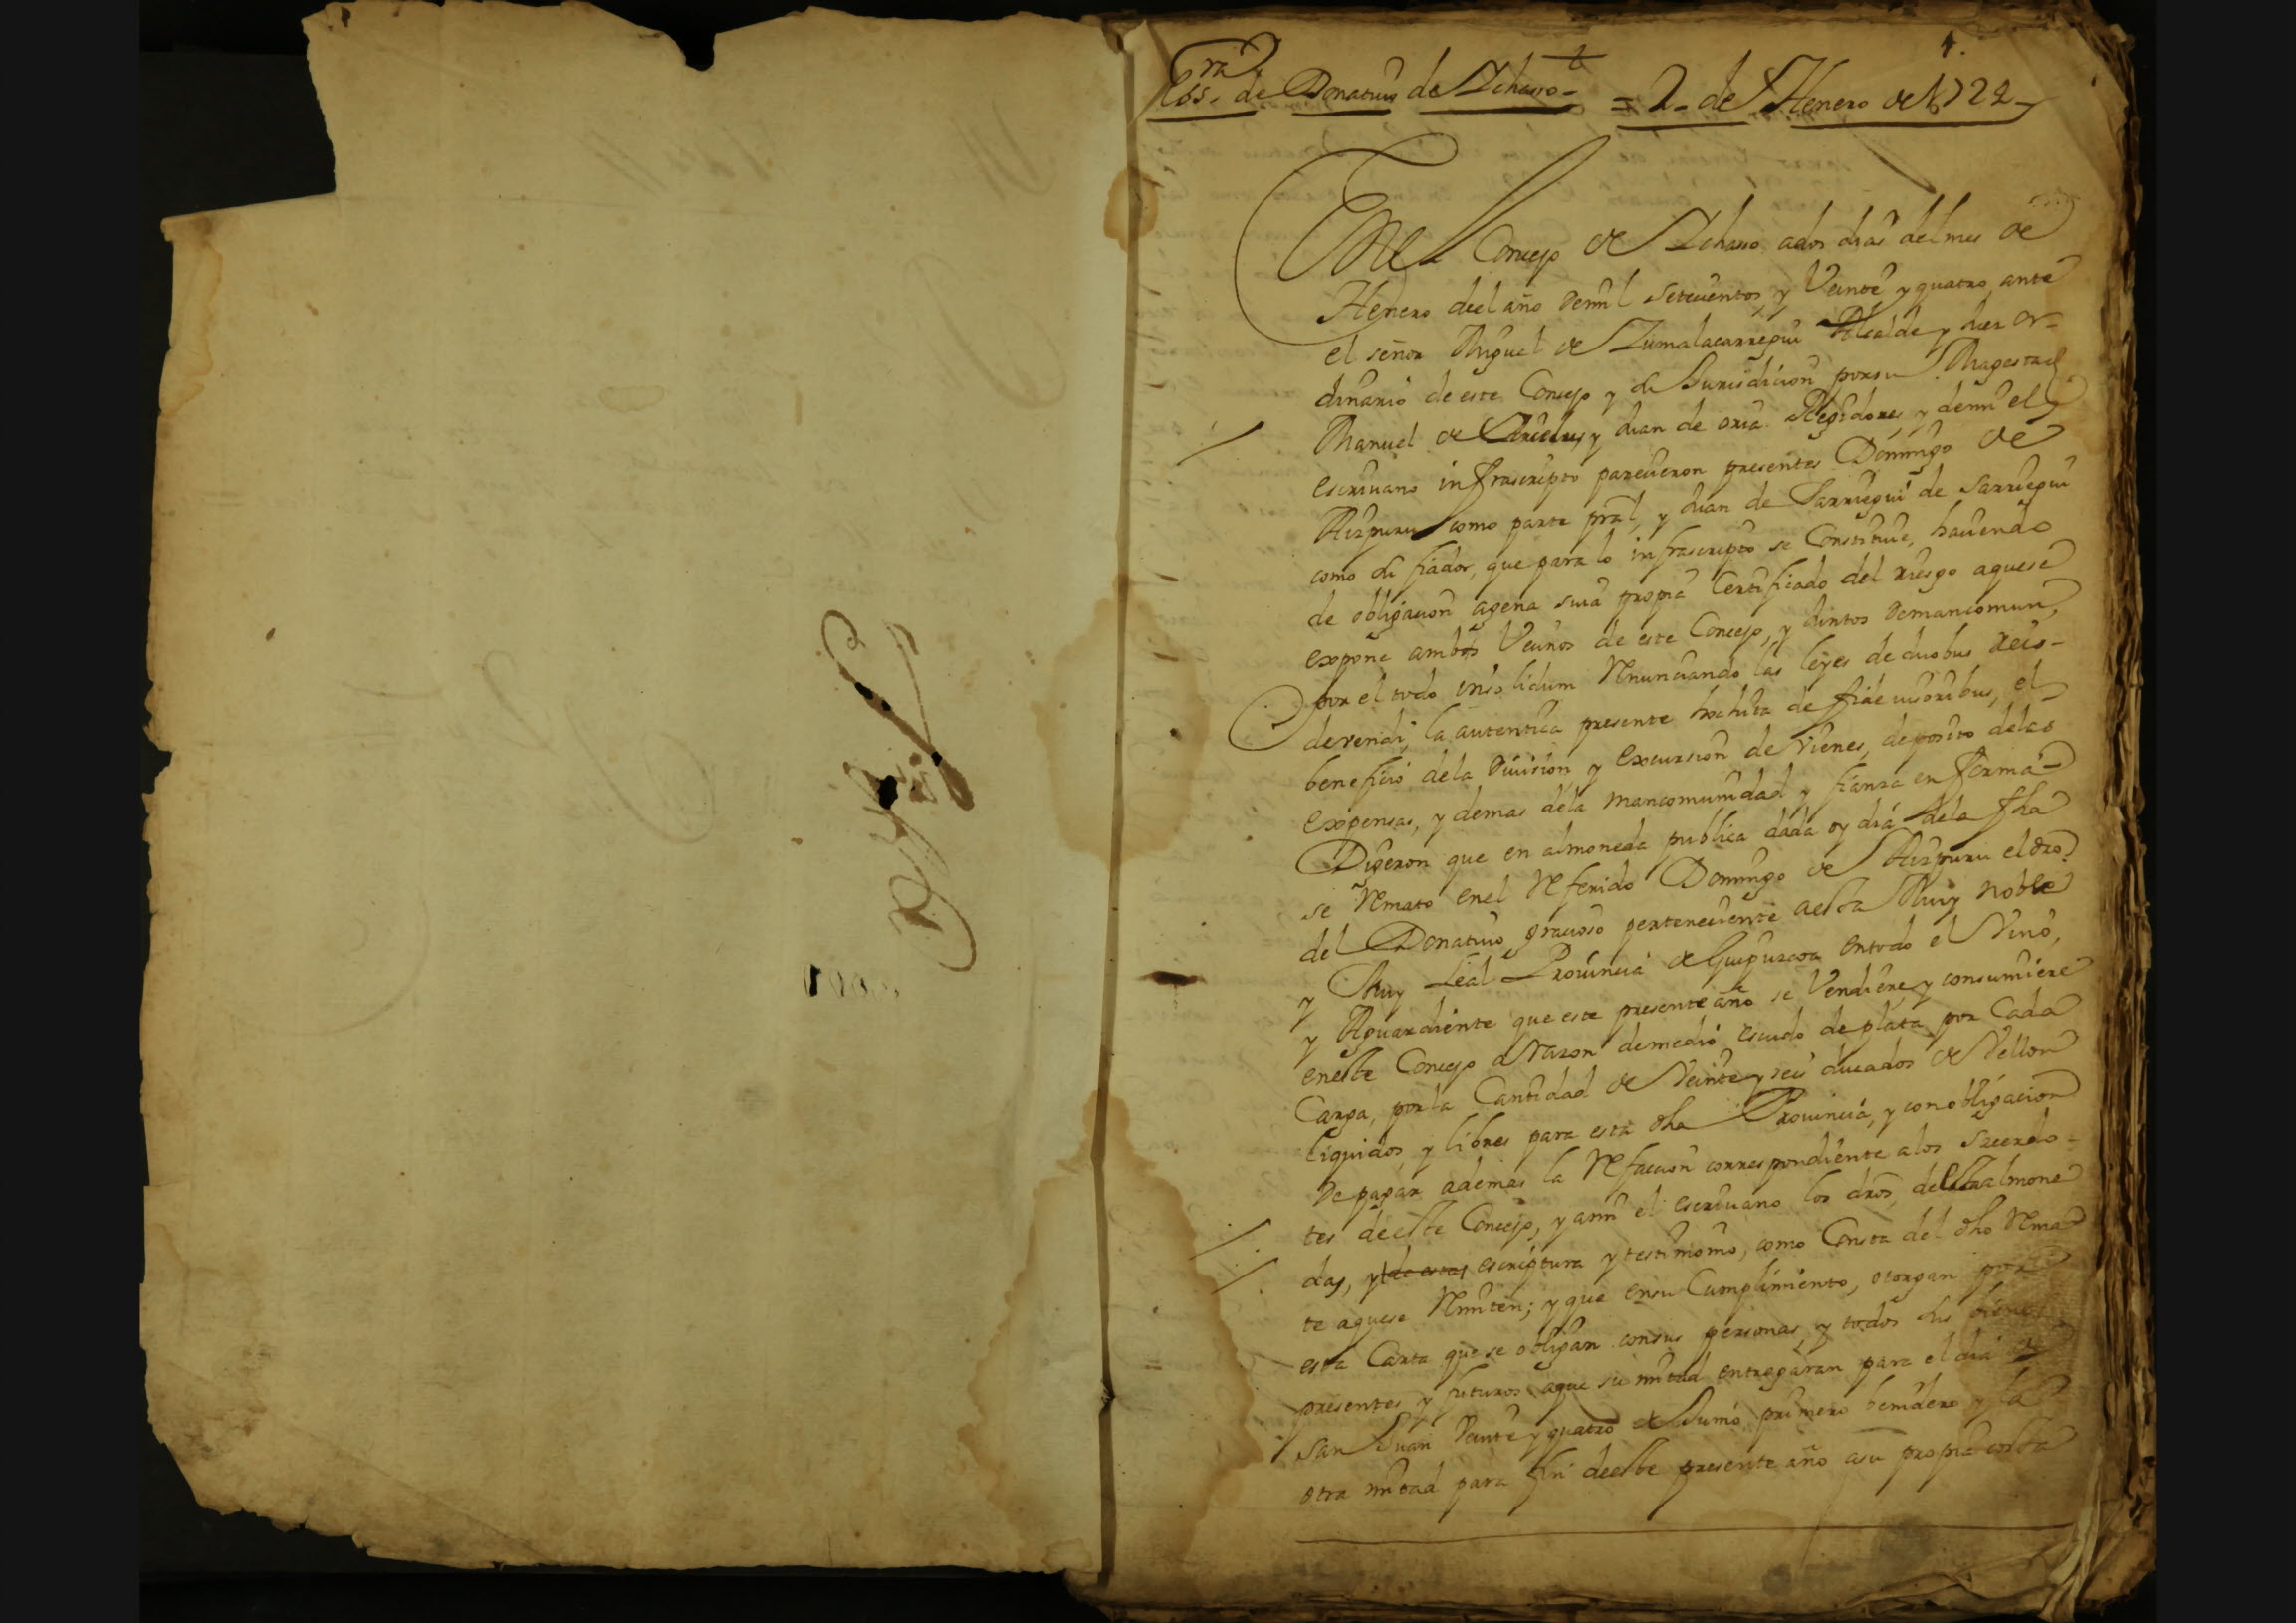 1.
Ess.ra de Donativo de Ichaso = 2 de Henero de 1724
En el Concejo de Ichaso a dos dias del mes de
Henero deel año de mil setecientos, y Veinte y quatro, ante
el señor Miguel de Zumalacarregui Alcalde y Juez or-
dinario de este Concejo y su Jurisdicion por su Magestad
Manuel de y Juan de oria Regidores, y de mi el
escrivano infrascripto parecieron presentes Domingo de
Aizpuru como parte pral, y Juan de Sarriegui de Sarriegui
como su fiador, que para lo infrascripto se Constituie, haciendo
de obligacion agena suia propia Certificado del riesgo aquese
expone ambos Vecinos de este Concejo, y Juntos de mancomun,
por el todo insolidum Renunciando las leyes de duobus reis-
devendi, la autentica presente hochita de fide iusoribus, el
beneficio dela Division y excursion de Vienes, deposito delas
expensas, y demas dela mancomunidad y fianza en forma
Digeron que en almoneda publica dada oy dia dela fha
se Remato enel Referido Domingo de Aizpuru el dro
del Donativo gracioso perteneciente aesta Muy Noble
y Muy Leal Provincia de Guipuzcoa entodo el Vino,
y Aguardiente que este presente año se Vendiere, y consumiere
eneste Concejo a Razon demedio escudo de plata por Cada
Carga, por la Cantidad de Veinte y seis ducados de Vellon
liquidos, y libres para esta dha Provincia, y con obligacion
de pagar ademas la Refaccion correspondiente alos sacerdo-
tes deeste Concejo, y ami el escrivano los dros, de almone
das, y escriptura y testimonio, como Consta del dho Rema
te aquese Remiten; y que ensu Cumplimiento, otorgan por
esta Carta que se obligan consus personas, y todos sus bienes
presentes, y futuros aque su mitad entregaran para el dia de
San Juan Veinte y quatro de Junio primero benidero y la
otra mitad para fin deeste presente año asu propia costa